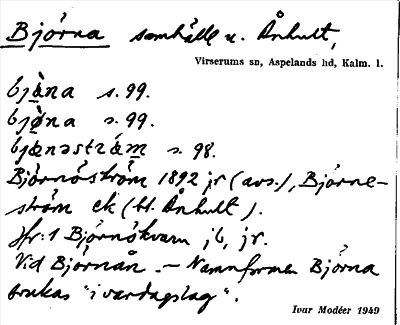 Björna samhälle u. Ånhult,
Virserums sn, Aspelands hd, Kalm. l.
bjäna s. 99.
bjøna s. 99.
bjænəström s. 98.
Björnöström 1892 jr (avs.), Björne-
ström ek (bl. Ånhult).
Jfr: 1 Björnökvarn jb, jr.
Vid Björnån. — Namnformen Björna
brukas "i vardagslag".
Ivar Modéer 1949